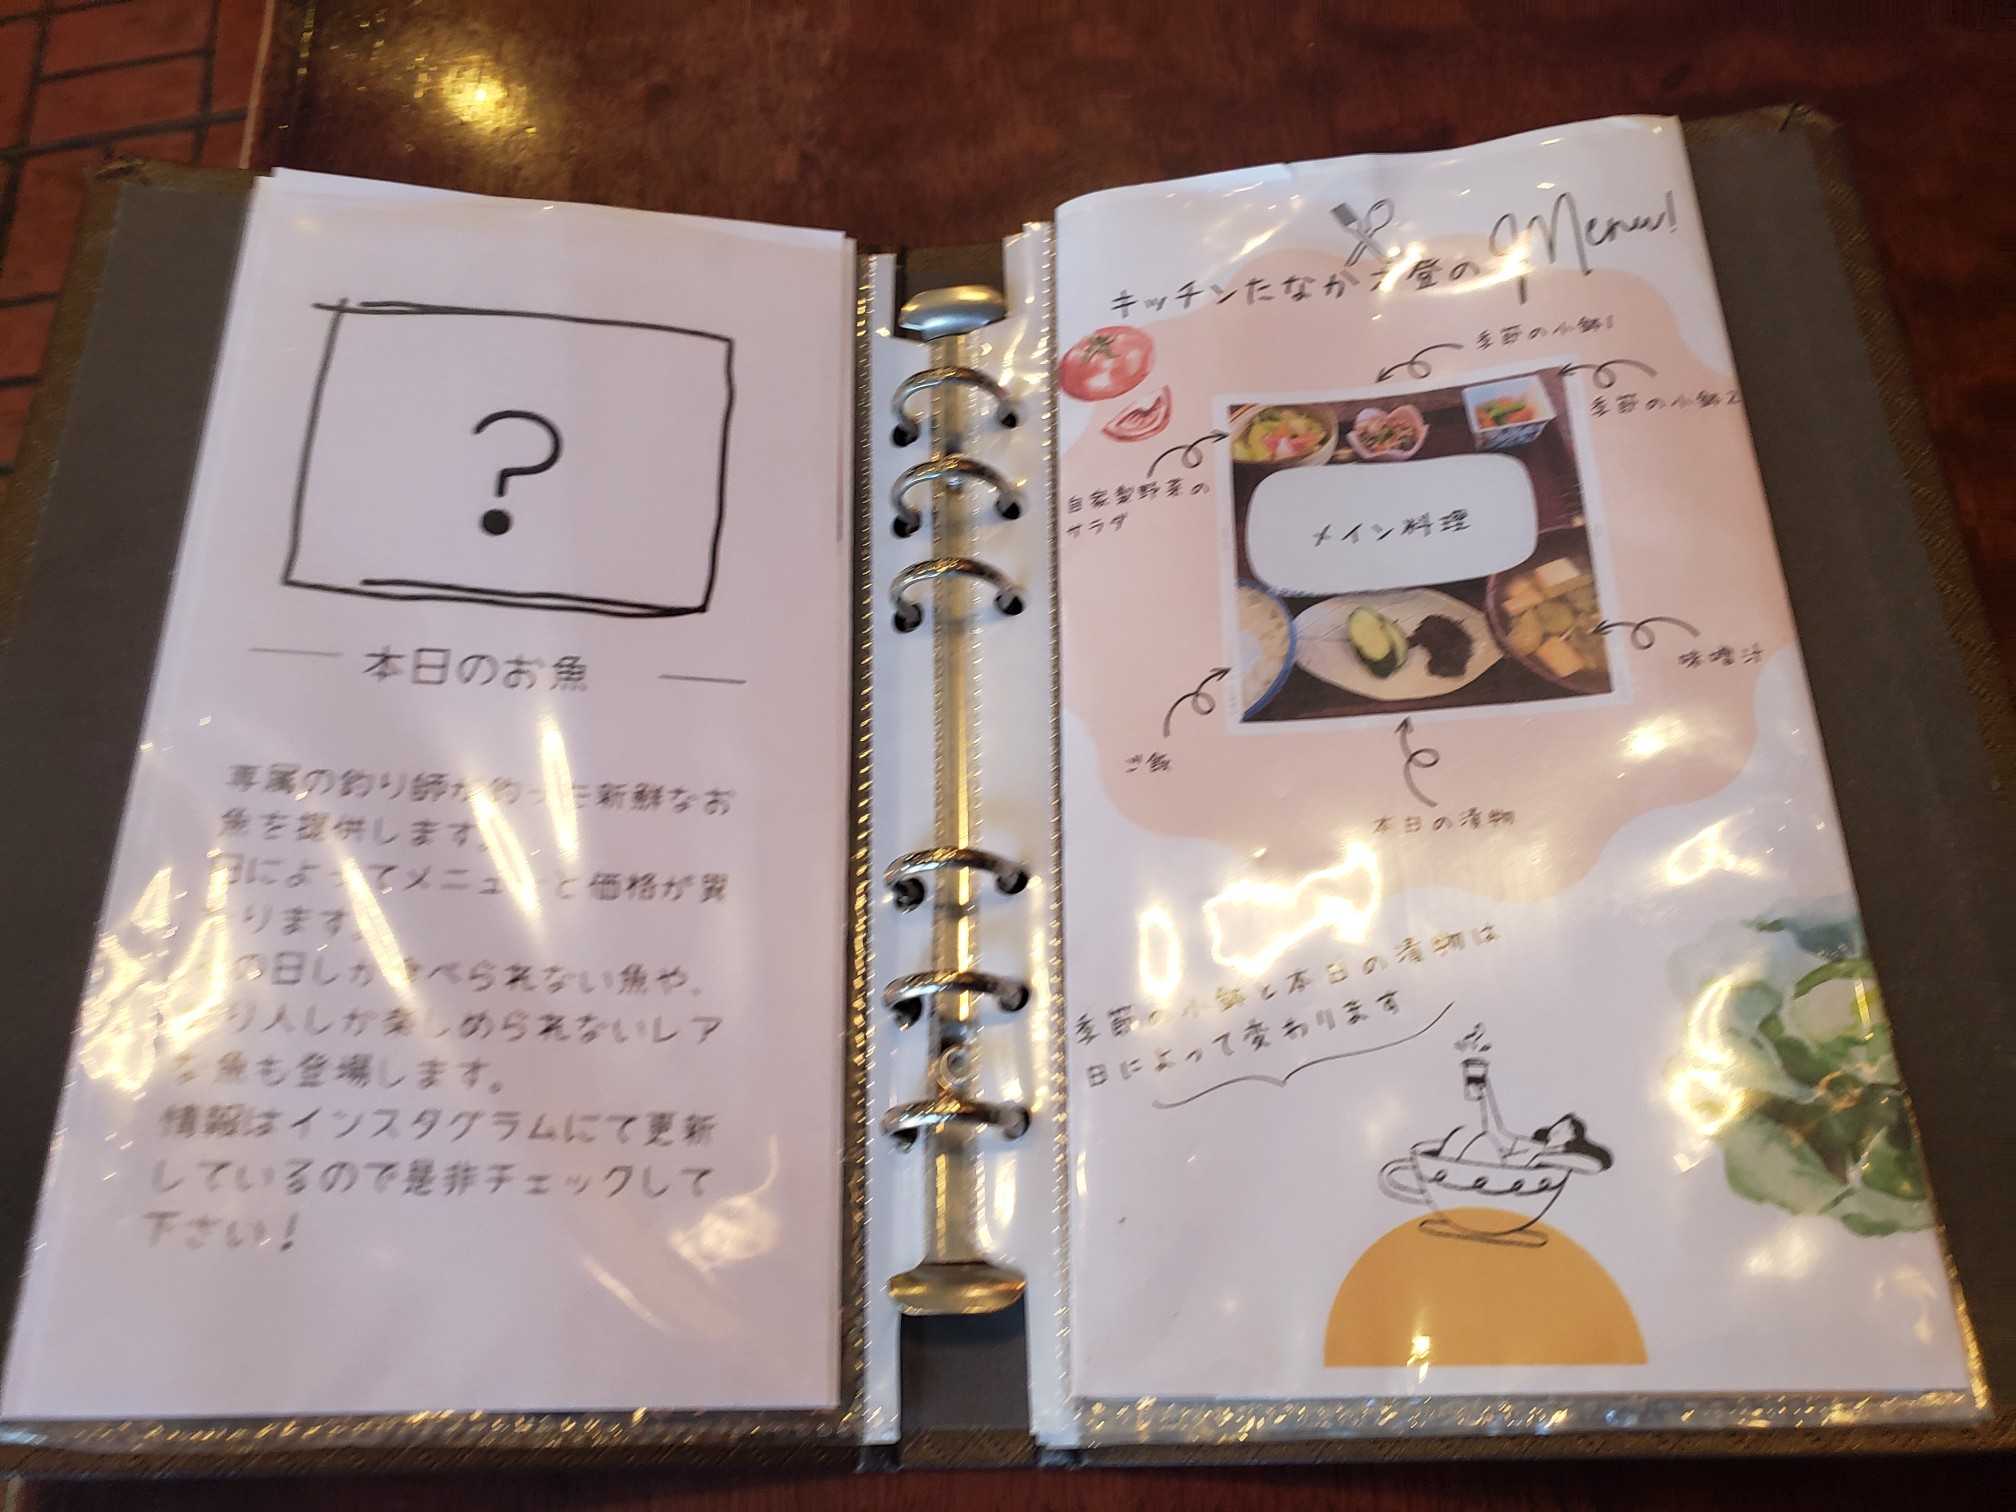 ?
本日のお魚
専属の釣り師が釣った新鮮なお
魚を提供します。
日によってメニューと価格が異
ります。
の日しか食べられない魚や、
り人しか楽しめられないレア
な魚も登場します。
情報はインスタグラムにて更新
しているので是非チェックして
下さい！
Menu!
キッチンたなか 昼の
季節の小鉢1
季節の小鉢2
自家製野菜の
サラダ
メイン料理
味噌汁
ご飯
本日の漬物
季節の小鉢と本日の漬物は
日によって変わります